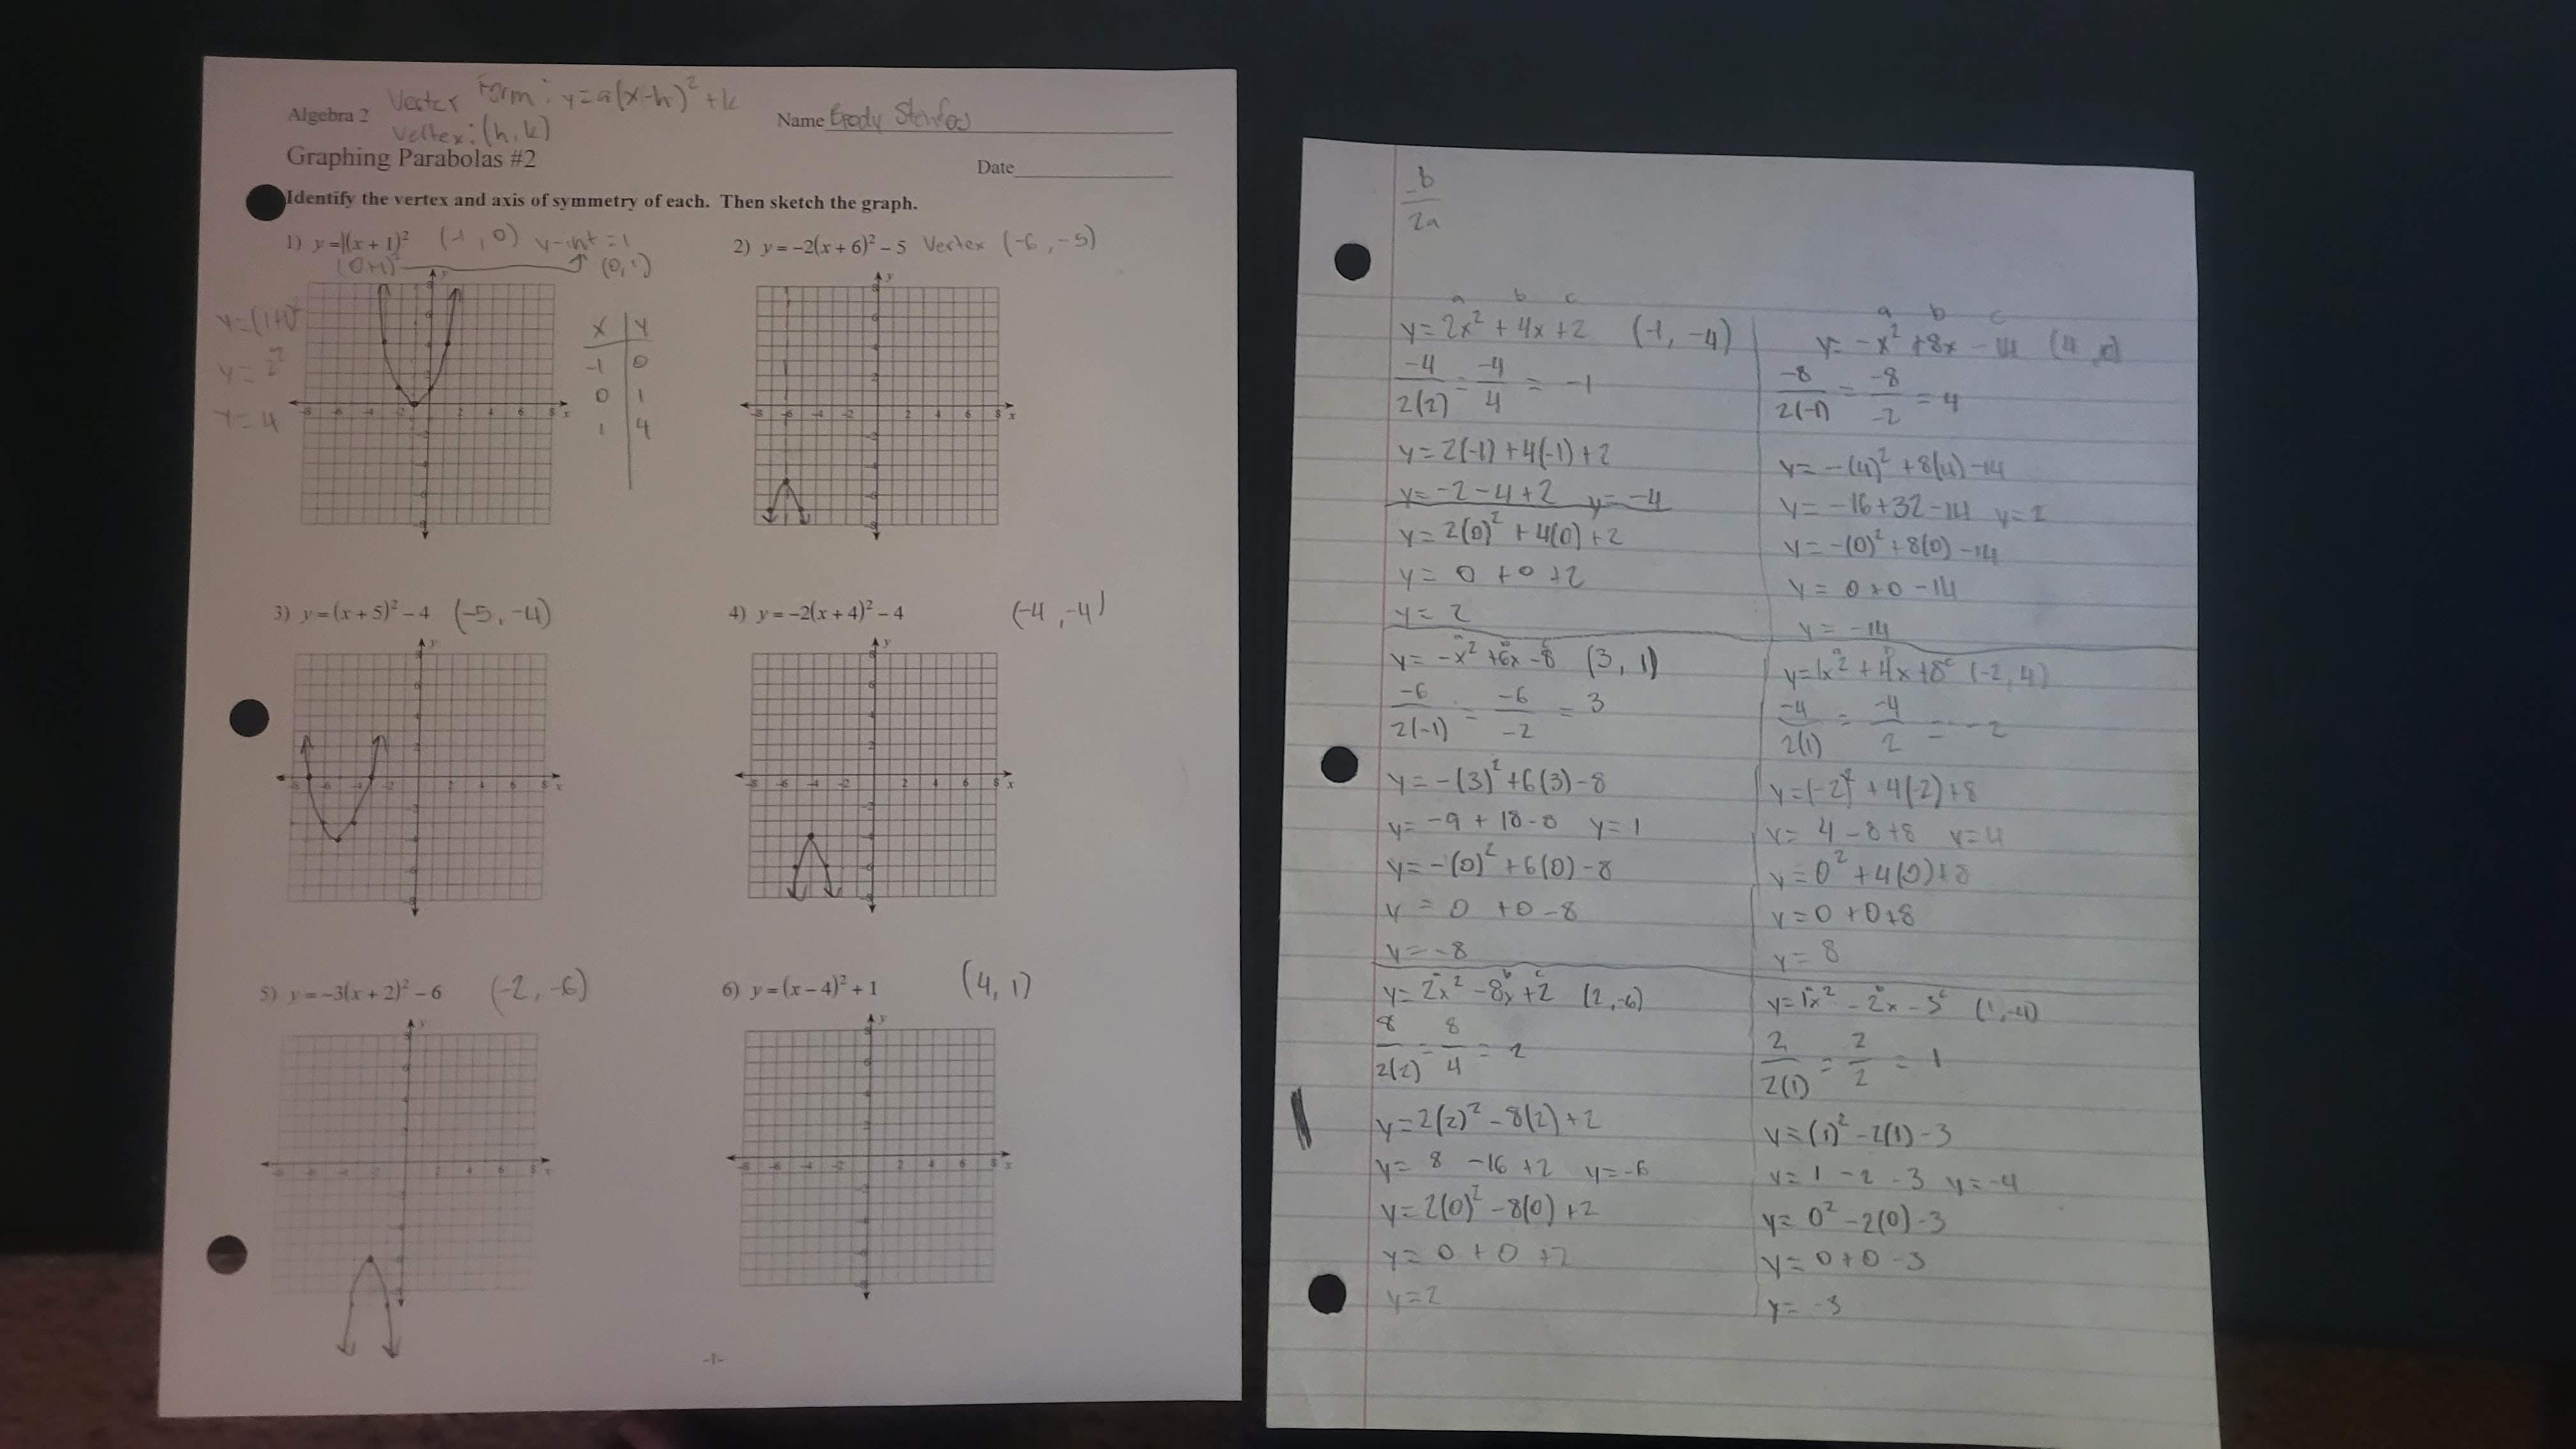 Algebra 2
Vertex Form: y=a(x-h)² + k
Vertex: (h, k)
Name
Graphing Parabolas #2
Date
Identify the vertex and axis of symmetry of each. Then sketch the graph.
1) y = 1(x + 1)² (-1, 0) y-int = 1
(0+1)² (0, 1)
y=(1+1)²
y = 2²
y = 4
x | y
-1 | 0
0 | 1
1 | 4
2) y = –2(x + 6)² – 5 Vertex (-6, -5)
3) y = (x + 5)² – 4 (-5, -4)
4) y = –2(x + 4)² – 4 (-4, -4)
5) y = –3(x + 2)² – 6 (-2, -6)
6) y = (x – 4)² + 1 (4, 1)
-1-
-b
2a
a b c
y = 2x² + 4x + 2 (-1, -4)
-4/2(2) = -4/4 = -1
y = 2(-1) + 4(-1) + 2
y = -2 - 4 + 2 y = -4
y = 2(0)² + 4(0) + 2
y = 0 + 0 + 2
y = 2
a b c
y = -x² + 8x - 14 (4
-8/2(-1) = -8/-2 = 4
y = -(4)² + 8(4) - 14
y = -16 + 32 - 14 y = 2
y = -(0)² + 8(0) - 14
y = 0 + 0 - 14
y = -14
y = -x² + 6x - 8 (3, 1)
-6/2(-1) = -6/-2 = 3
y = -(3)² + 6(3) - 8
y = -9 + 18 - 8 y = 1
y = -(0)² + 6(0) - 8
y = 0 + 0 - 8
y = -8
y = 1x² + 4x + 8 (-2, 4)
-4/2(1) = -4/2 = -2
y = (-2)² + 4(-2) + 8
y = 4 - 8 + 8 y = 4
y = 0² + 4(0) + 8
y = 0 + 0 + 8
y = 8
b c
y = 2x² - 8x + 2 (2, -6)
8/2(2) = 8/4 = 2
y = 2(2)² - 8(2) + 2
y = 8 - 16 + 2 y = -6
y = 2(0)² - 8(0) + 2
y = 0 + 0 + 2
y = 2
y = 1x² - 2x - 3 (1, -4)
2/2(1) = 2/2 = 1
y = (1)² - 2(1) - 3
y = 1 - 2 - 3 y = -4
y = 0² - 2(0) - 3
y = 0 + 0 - 3
y = -3